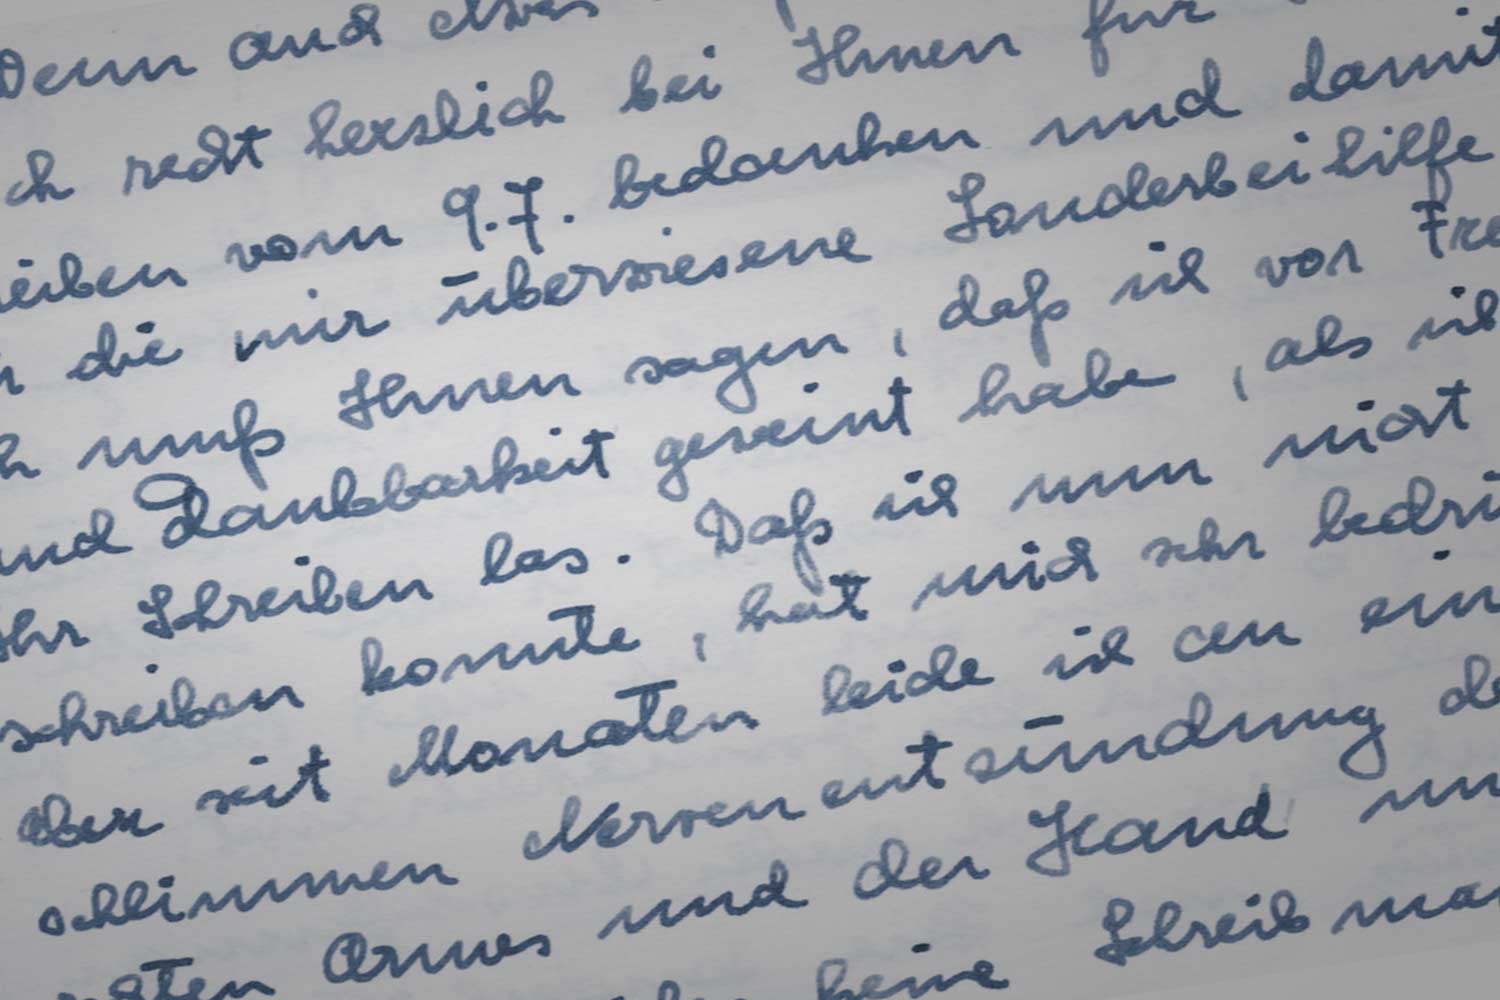 Wenn auch etwas
ch recht herzlich bei Ihnen für
eiben vom 9.7. bedanken und damit
die mir überwiesene Sonderbeihilfe
h muß Ihnen sagen, daß ich vor Fre
und Dankbarkeit geweint habe, als ich
Ihr Schreiben las. Daß ich nun nicht
schreiben konnte, hat mich sehr bedrü
Aber seit Monaten leide ich an ein
schlimmen Nervenentzündung de
chten Armes und der Hand un
keine Schreibma